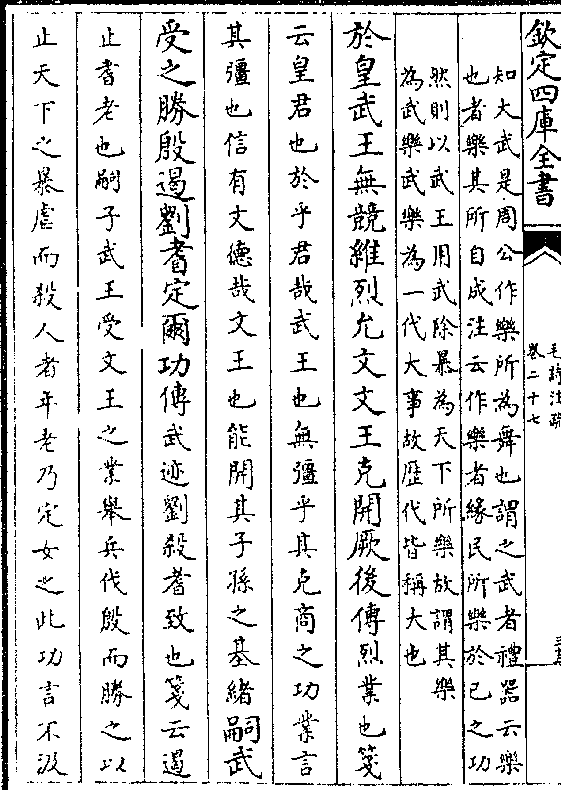 欽定四庫全書
毛詩注疏
卷二十七
知大武是周公作樂所為舞也謂之武者禮器云樂
也者樂其所自成注云作樂者緣民所樂於己之功
然則以武王用武除暴為天下所樂故謂其樂
為武樂武樂為一代大事故歴代皆稱大也
於皇武王無競維烈允文文王克開厥後傳烈業也箋
云皇君也於乎君哉武王也無彊乎其克商之功業言
其彊也信有文德哉文王也能開其子孫之基緒嗣武
受之勝殷遏劉耆定爾功傳武迹劉殺耆致也箋云遏
止耆老也嗣子武王受文王之業舉兵伐殷而勝之以
止天下之暴虐而殺人者年老乃定女之此功言不汲